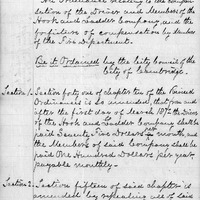 An Ordinance relating to the Compen-
sation of the Driver and Members of the
Hook and Ladder Company, and the
forfeiture of compensation by Members
of the Fire Department.
Be it Ordained by the City Council of the
City of Cambridge.
Section 1. Section forty one of chapter ten of the
Ordinances is so amended, that from and
after the first day of March 187 the Driver
of the Hook and Ladder Company shall be
paid Seventy Five Dollars per month, and
the Members of said Company shall be
paid One Hundred Dollars per year,
payable monthly.
Section 2. Section fifteen of said chapter is
amended by repealing all of said